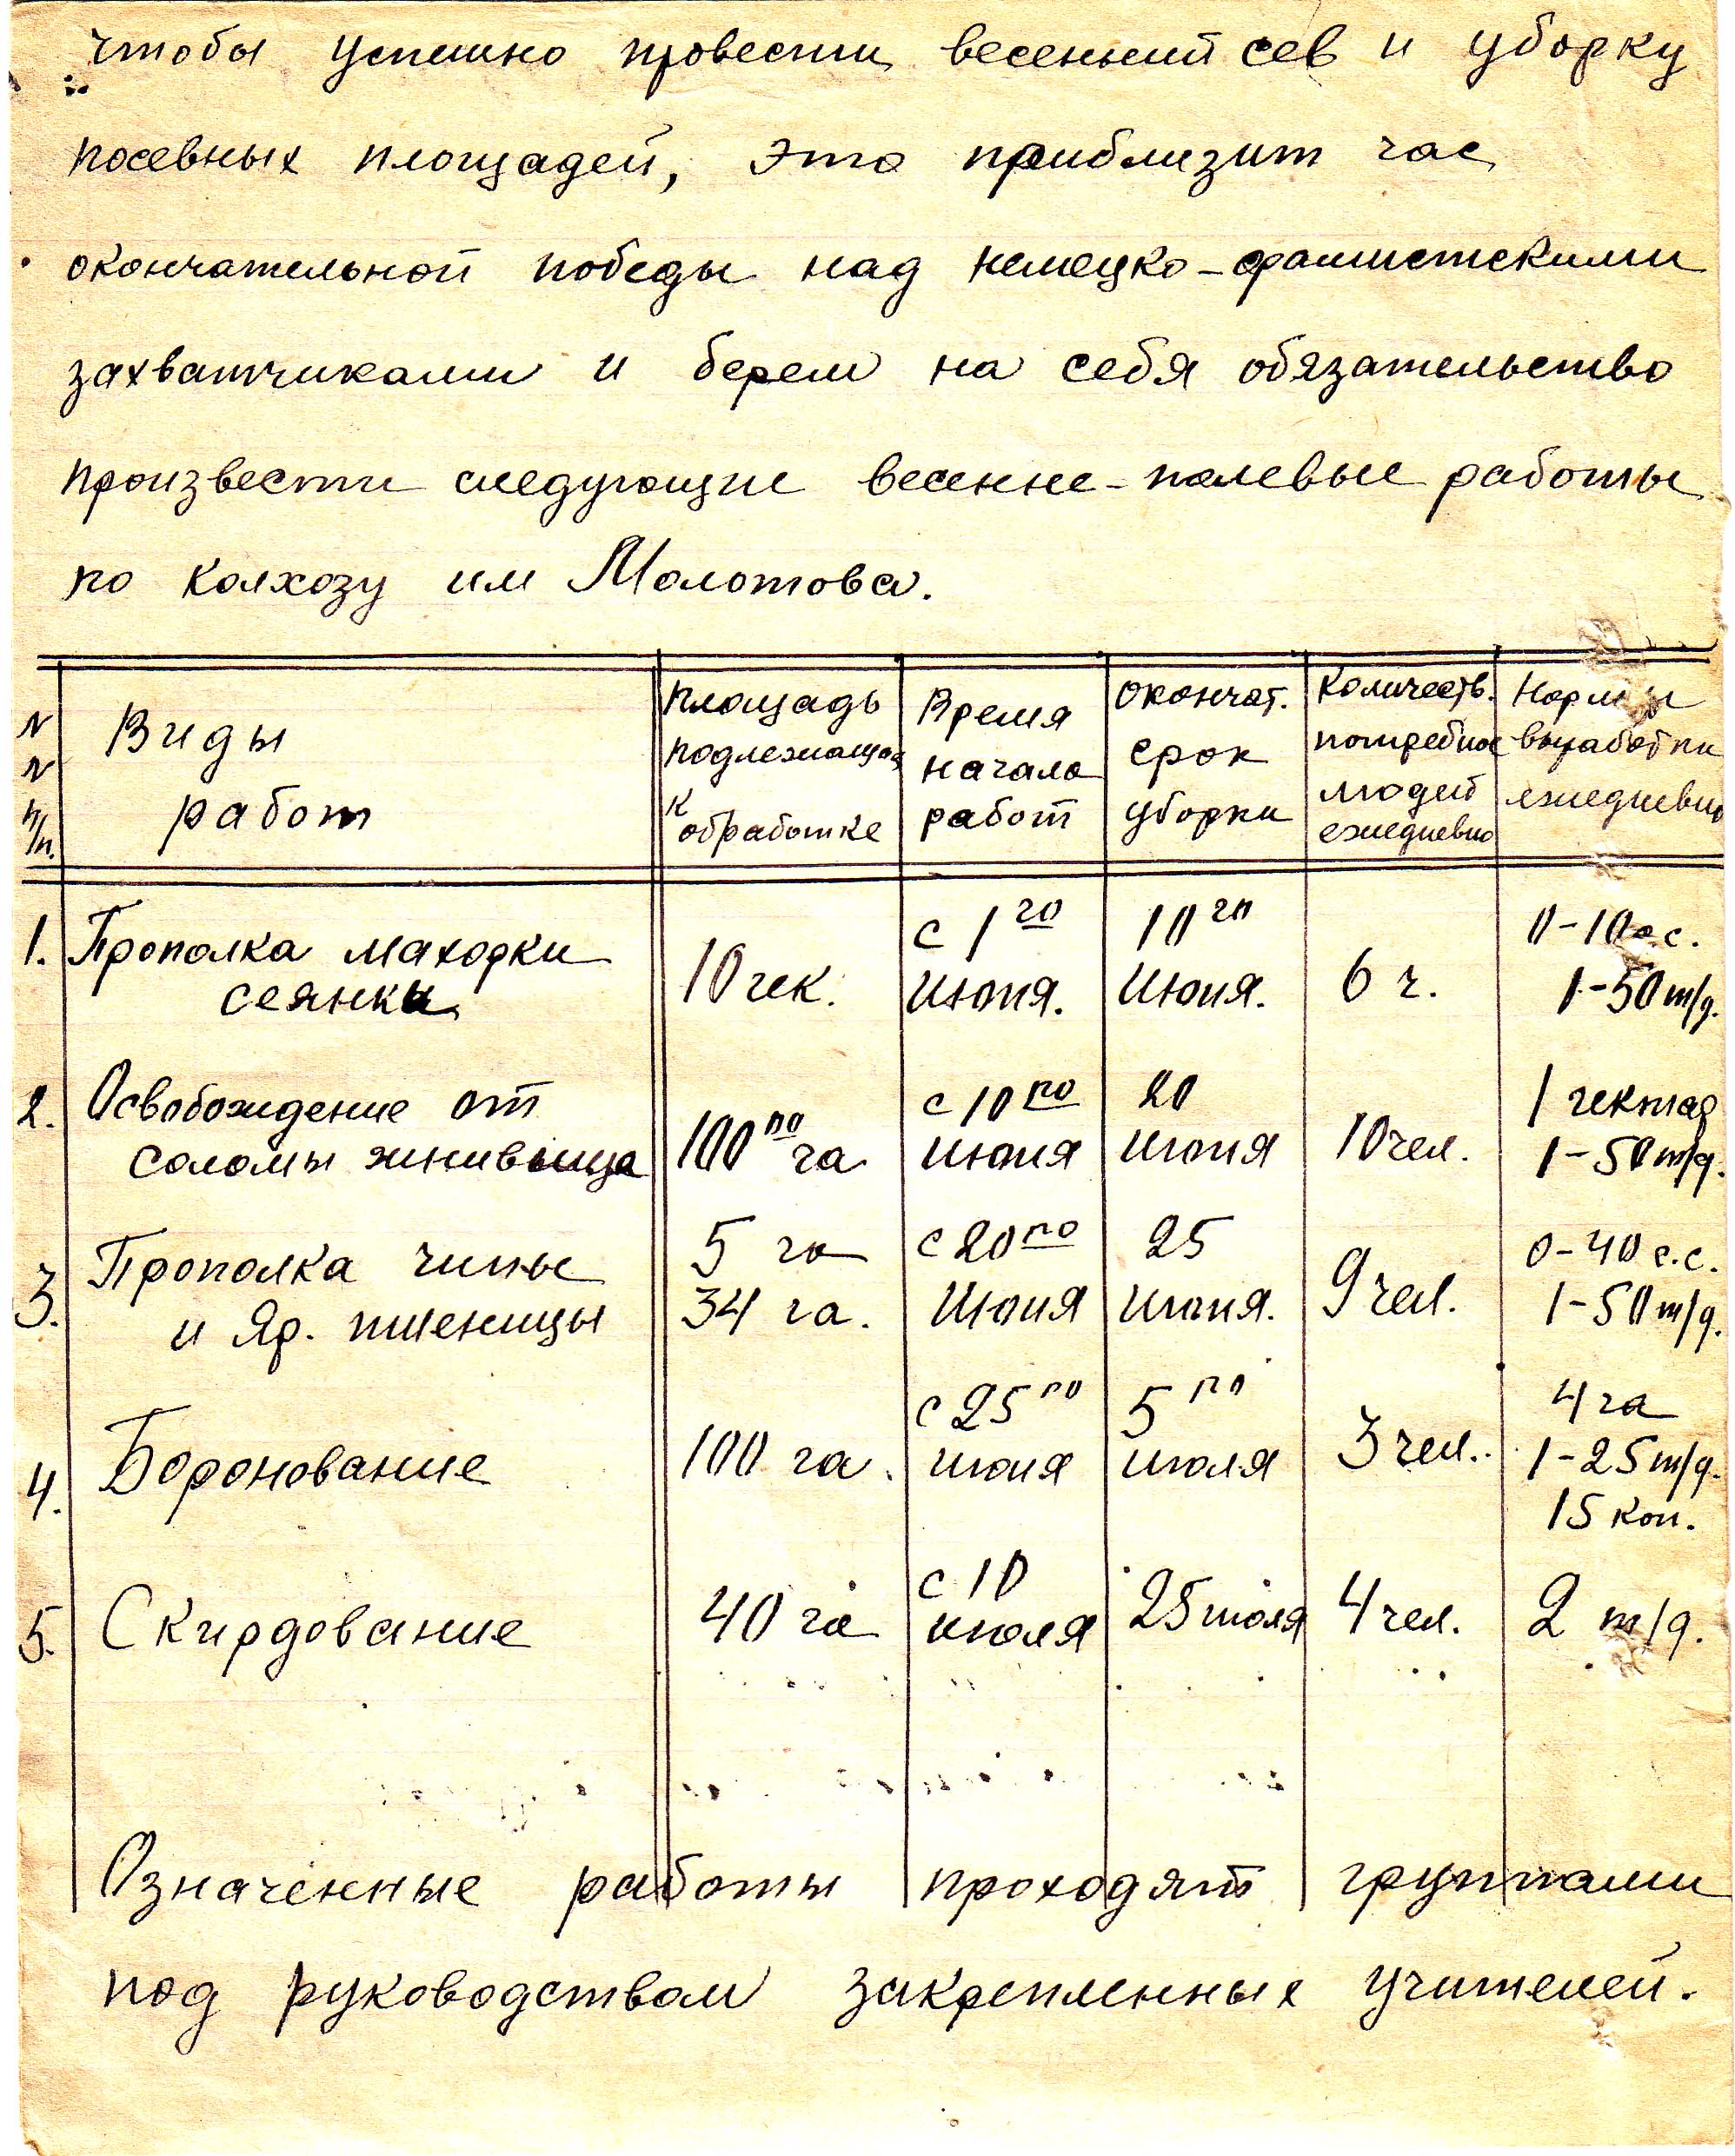 чтобы успешно провести весенний сев и уборку
посевных площадей, это приблизит час
окончательной победы над немецко-фашистскими
захватчиками и берем на себя обязательство
произвести следующие весенне-полевые работы
по колхозу им Молотова.
N N п/п. Виды работ площадь подлежащая к обработке Время начала работ окончат. срок уборки количеств. потребное людей ежедневно Нормы выработки ежедневно
1. Прополка махорки сеянки 10 гек. с 1го июня. 10го июня. 6 ч. 0-10 с.с. 1-50 т/д.
2. Освобождение от соломы жнивьища 100 га с 10го июня 20 июня 10 чел. 1 гектар 1-50 т/д.
3. Прополка чины и яр. пшеницы 5 га 34 га. с 20го июня 25 июня. 9 чел. 0-40 с.с. 1-50 т/д.
4. Боронование 100 га. с 25го июня 5го июля 3 чел. 4 га 1-25 т/д. 15 коп.
5. Скирдование 40 га с 10 июля 25 июля 4 чел. 2 т/д.
Означенные работы проходят группами
под руководством закрепленных учителей.